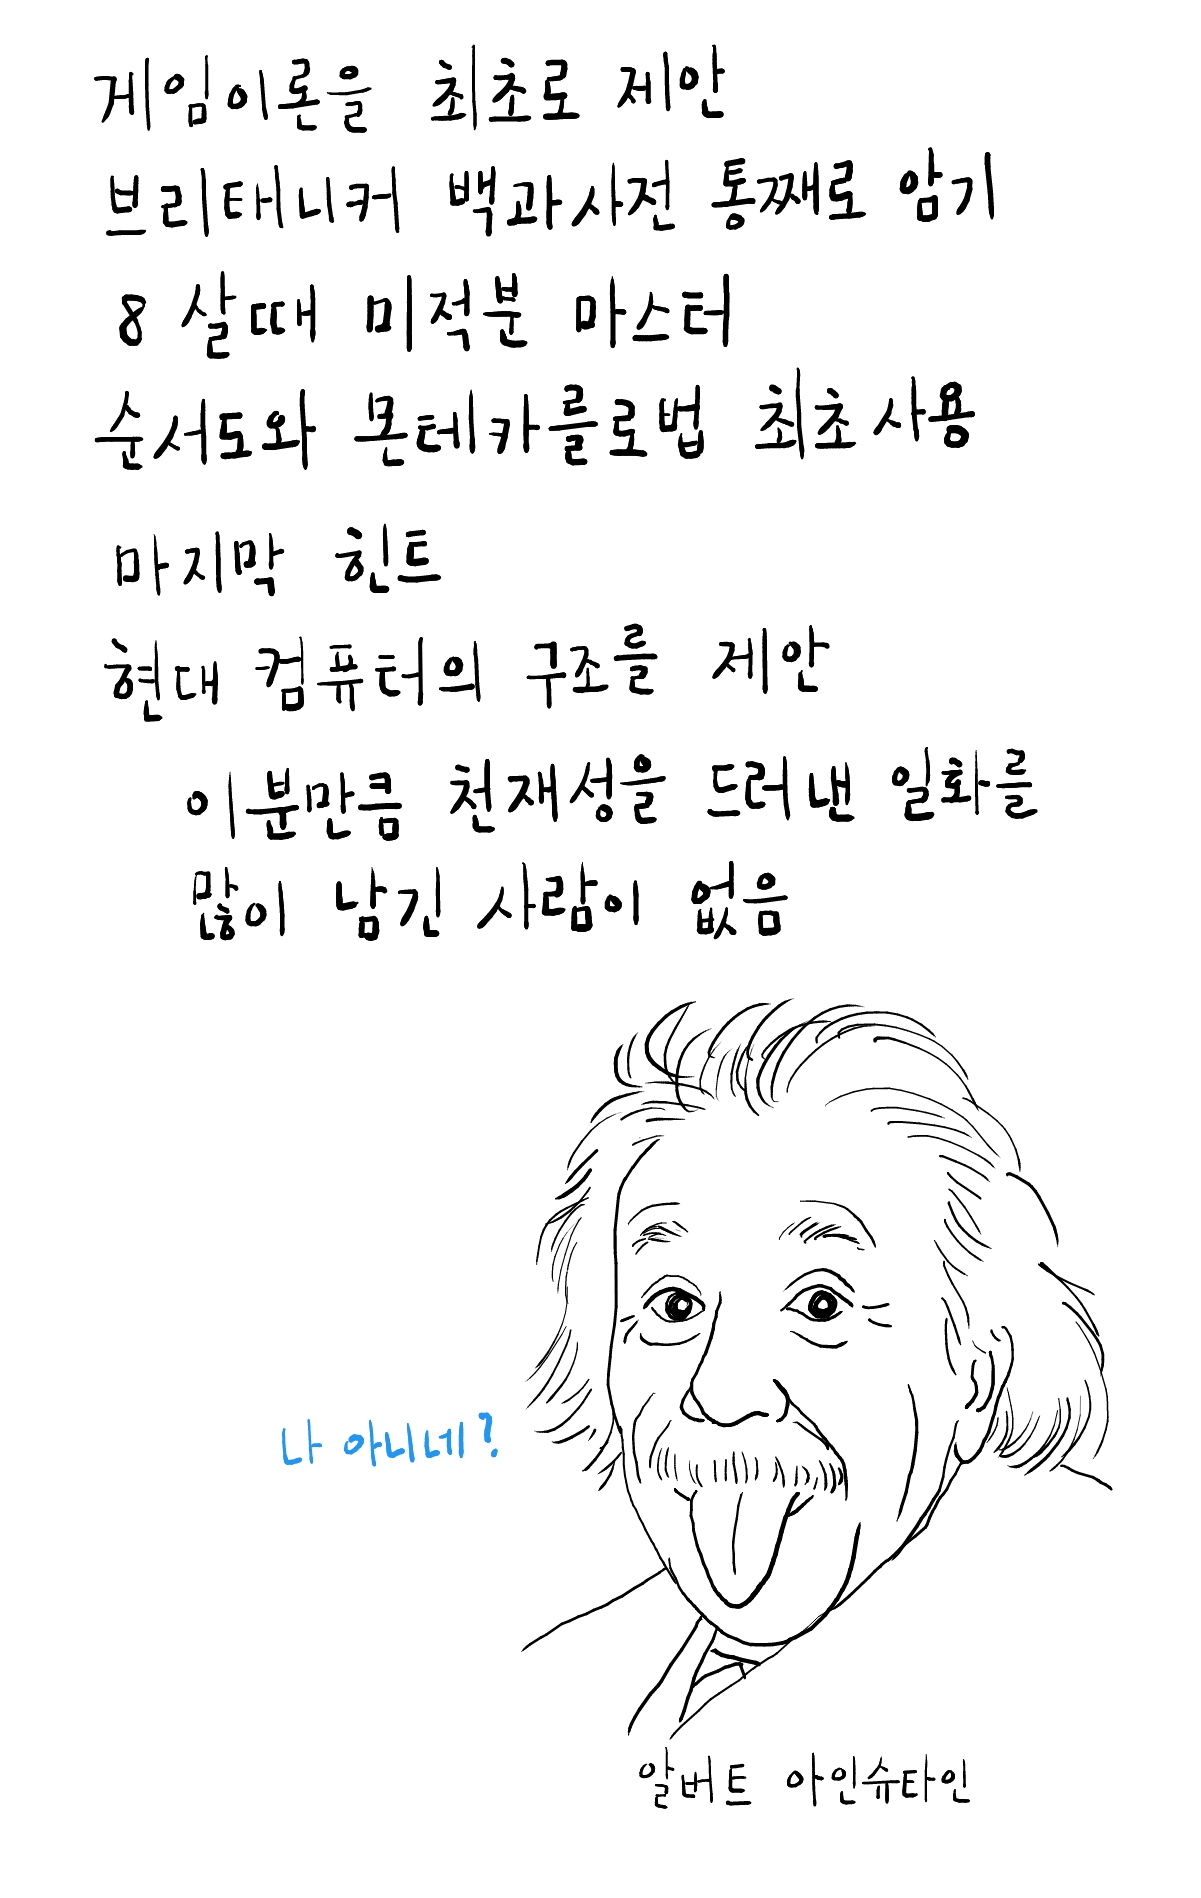 게임이론을 최초로 제안
브리태니커 백과사전 통째로 암기
8살때 미적분 마스터
순서도와 몬테카를로법 최초사용
마지막 힌트
현대 컴퓨터의 구조를 제안
이분만큼 천재성을 드러낸 일화를
많이 남긴 사람이 없음
나 아니네?
알버트 아인슈타인